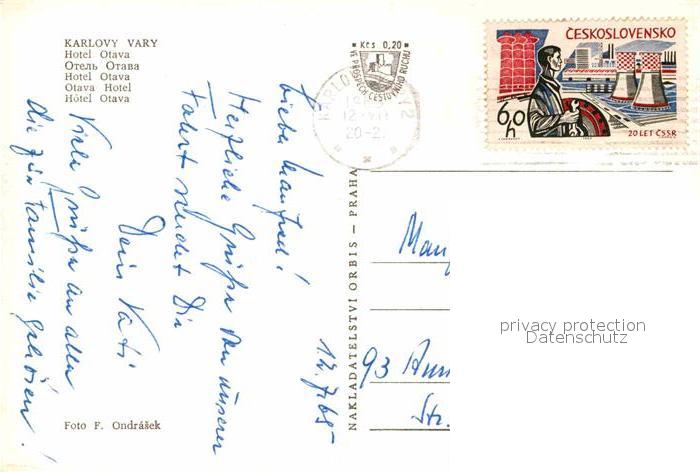 KARLOVY VARY
Hotel Otava
Отель Отава
Hotel Otava
Otava Hotel
Hôtel Otava
Kčs 0,20
VE PROSPĚCH CESTOVNÍHO RUCHU
KARLOVY VARY 2
20-2
ČESKOSLOVENSKO
60 h
20 LET ČSSR
12.7.65
Lieber Manfred!
Herzliche Grüße von unserer
Fahrt sendet Dir
Dein Vati
Viele Grüße an alle,
die zur Familie gehören!
NAKLADATELSTVÍ ORBIS – PRAHA
Man
93
Str.
privacy protection
Datenschutz
Foto F. Ondrášek